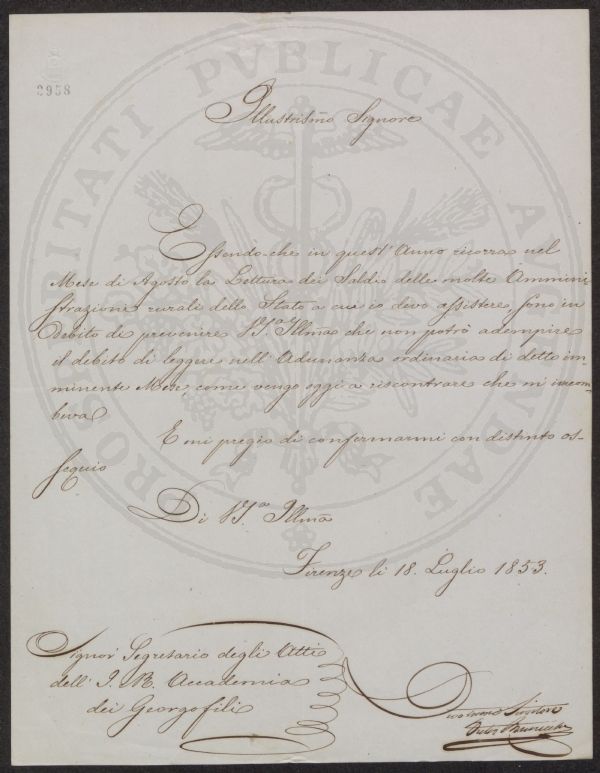 2958
Illustrismo Signore
Essendo che in quest'Anno ricorra nel
Mese di Agosto la Lettura dei Saldi delle molte Ammini
strazioni rurali dello Stato a cui io devo assistere, sono in
debito di prevenire VS.ª Illma che non potrò adempire
il debito di leggere nell'Adunanza ordinaria di detto im-
minente Mese, come vengo oggi a riscontrare che mi incom-
beva
E mi pregio di confermarmi con distinto os-
sequio
Di VS.ª Illma
Firenze li 18. Luglio 1853.
Signor Segretario degli Atti
dell'I. R. Accademia
dei Georgofili
PROSPERITATI PVBLICAE AVGENDAE